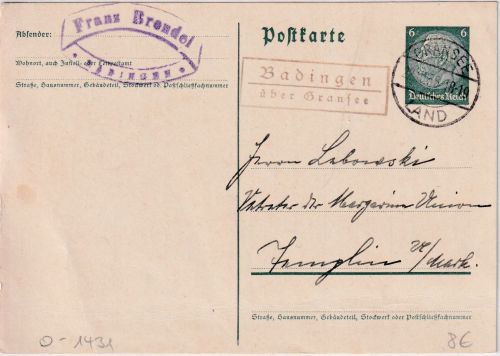 Absender:
Franz Brendel
BADINGEN
Wohnort, auch Zustell- oder Leitpostamt
Straße, Hausnummer, Gebäudeteil, Stockwerk od Postschließfachnummer
Postkarte
6 6
Deutsches Reich
GRANSEE
LAND
Badingen
über Gransee
Herrn Labowski
Vertreter der Margarine Union
Templin /Mark.
Straße, Hausnummer, Gebäudeteil, Stockwerk oder Postschließfachnummer
O-1431
8€